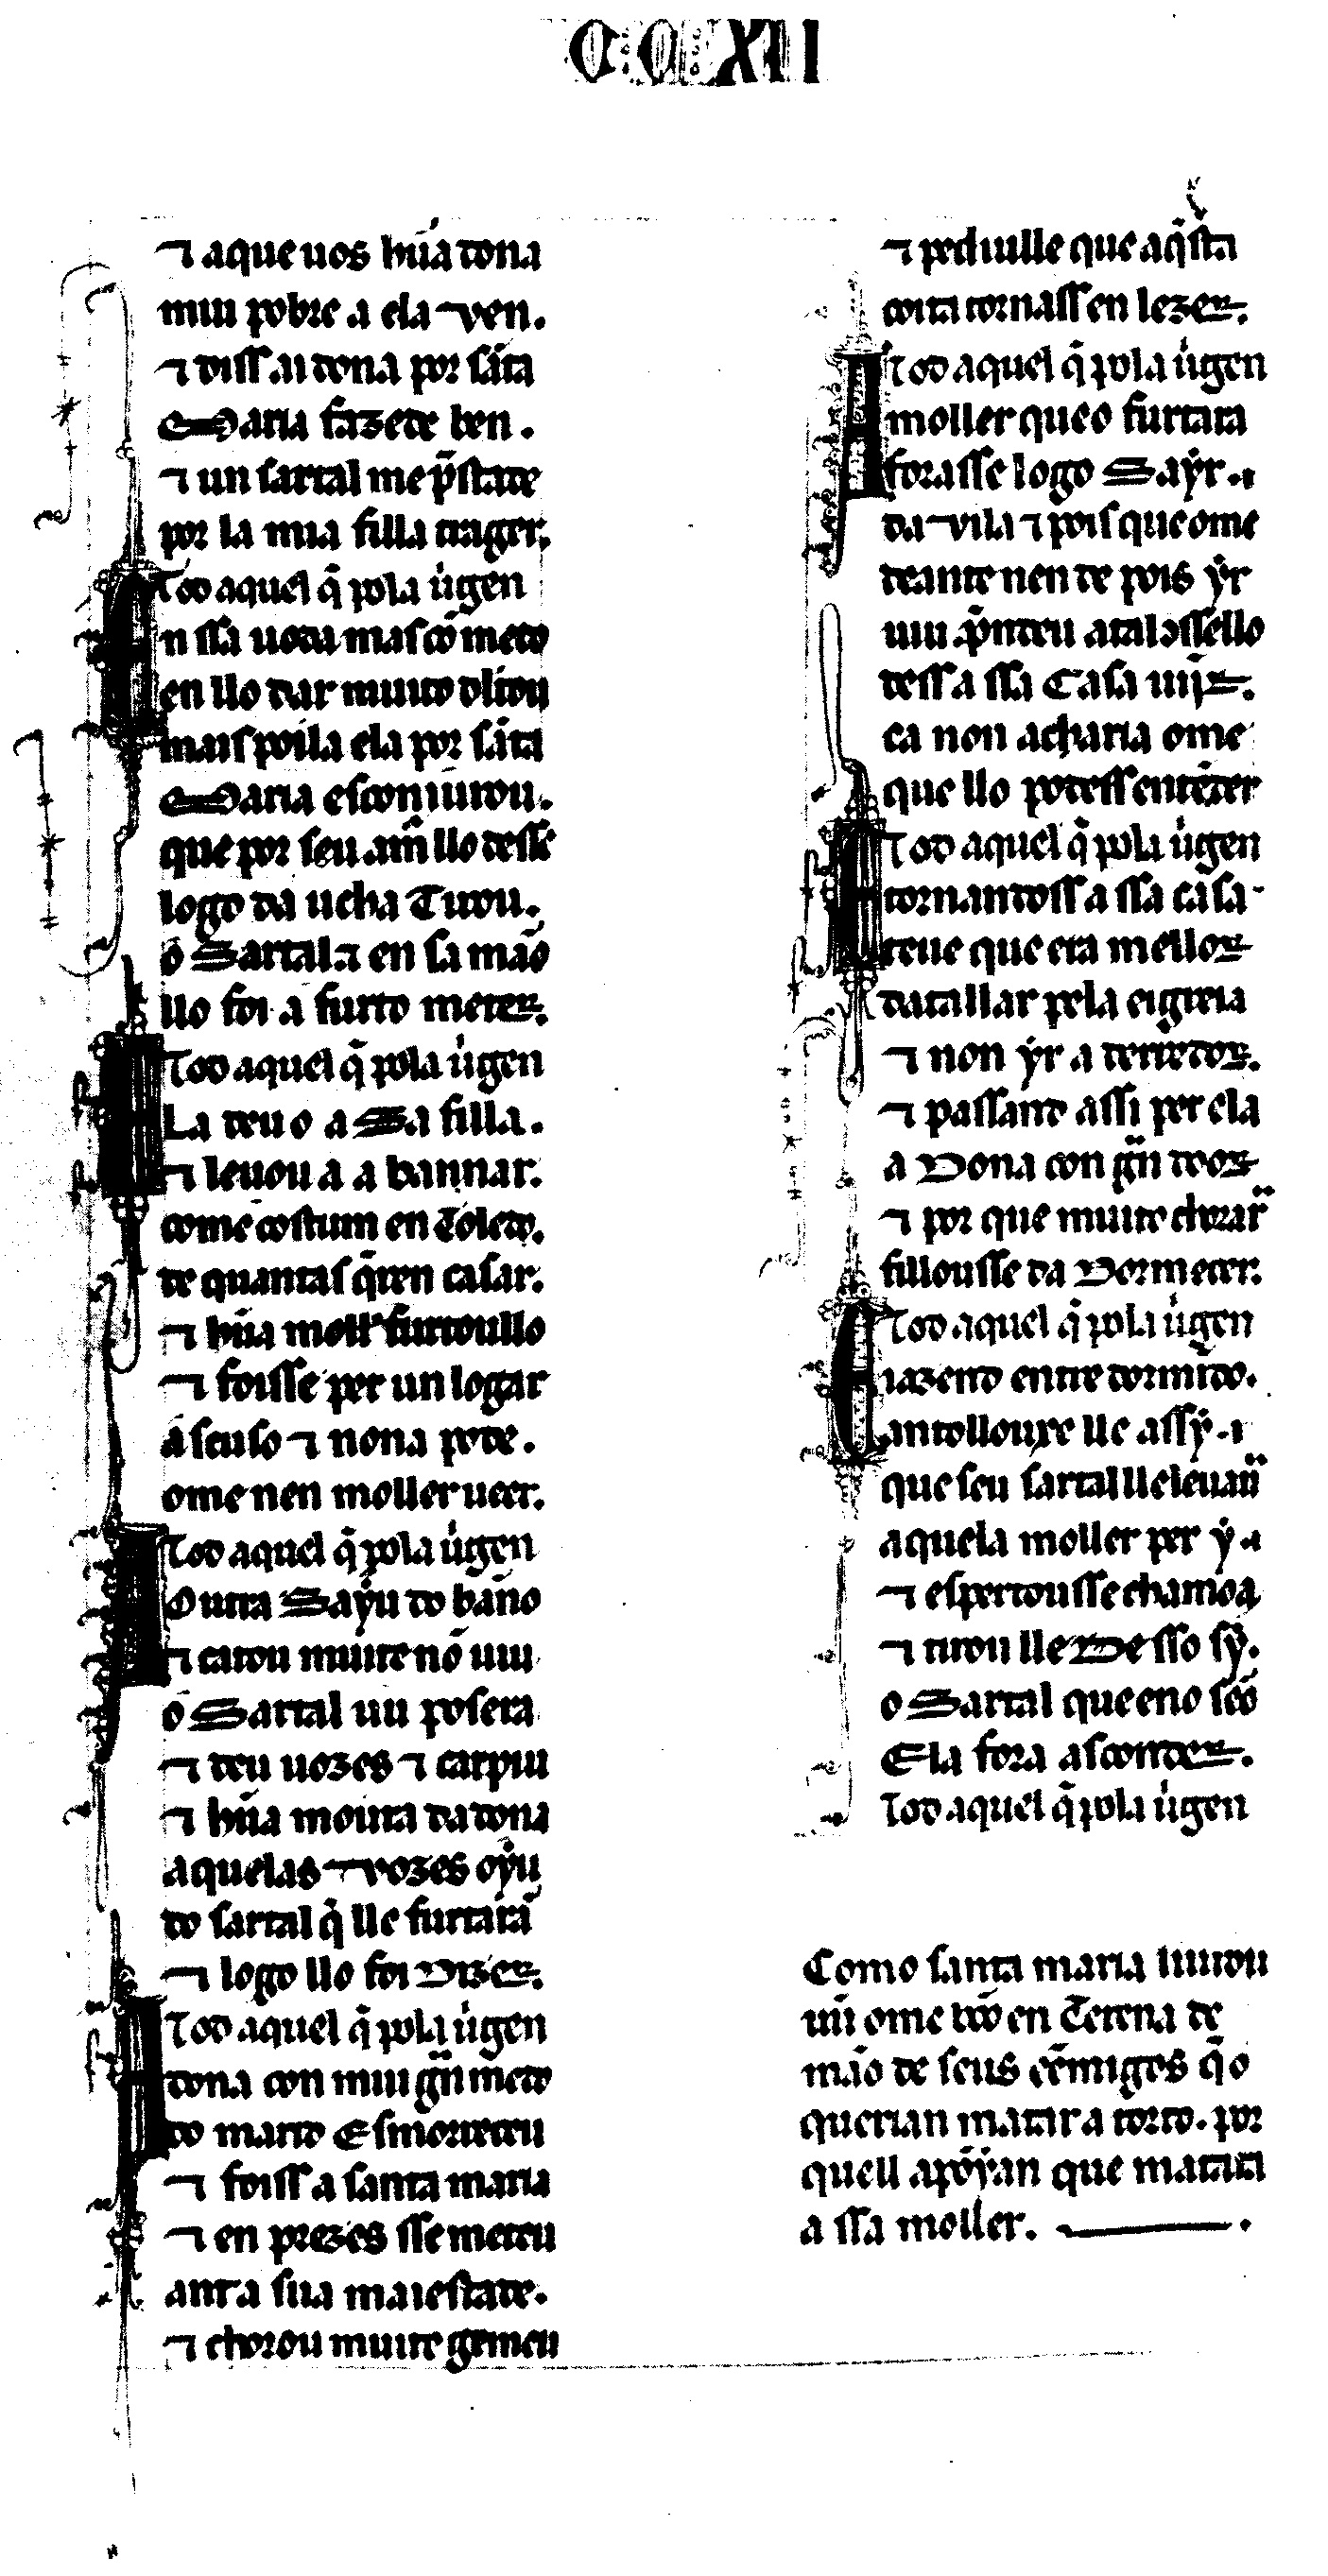 CCXII
⁊ aque uos hũa dona
mui pobre a ela uen.
⁊ diss ai dona por sãta
Maria fazede ben.
⁊ un sartal me p̃stade
por la mia filla trager.
Tod aquel q̃ pola uirgen
En ssa uoda mas com̃edo
en llo dar muito dultou
mais poila ela por sãta
Maria esconiurou.
que por seu am̃ llo desse
logo da ucha Tirou.
o Sartal ⁊ en sa mão
llo foi a furto meter.
Tod aquel q̃ pola uirgen
La deu o a Sa filla.
⁊ leuou a a bannar.
comẽ costum en Toledo.
de quantas q̃ren casar.
⁊ hũa moll furtoullo
⁊ foisse per un logar
ascuso ⁊ nona pode.
ome nen moller ueer.
Tod aquel q̃ pola uirgen
Outra Sayu do baño
⁊ catou muit e nõ uiu
o Sartal uu posera
⁊ deu uozes ⁊ carpiu
⁊ hũa moura da dona
aquelas uozes oyu
do sartal q̃ lle furtarã
⁊ logo llo foi Dizer.
Tod aquel q̃ pola uirgen
A dona con mui grã medo
do marido Esmoreceu
⁊ foiss a santa maria
⁊ en prezes sse meteu
ant a sua maiestade.
⁊ chorou muit e gemeu
⁊ pediulle que aq̃sta
coita tornass en lezer.
Tod aquel q̃ pola uirgen
A moller que o furtara
forasse logo Sayr.
da uila ⁊ pois que ome
deante nen de pois yr
uiu p̃ndeu a tal consello
dess a ssa Casa uĩir.
ca non acharia ome
que llo podess entẽder
Tod aquel q̃ pola uirgen
E tornandoss a ssa casa
teue que era mellor
datallar pela eigreia
⁊ non yr a derredor.
⁊ passand assi per ela
a Dona con grã door
⁊ por que muito chorar
fillousse da Dormecer.
Tod aquel q̃ pola uirgen
E iazend entre dormido.
antollouxe lle assy.
que seu sartal lle leuaũ
aquela moller per y.
⁊ espertousse chamoa
⁊ tirou lle De sso sy.
o Sartal que eno seo
Ela fora asconder.
Tod aquel q̃ pola uirgen
Como santa maria liurou
un ome bõo en Terena de
mão de seus ẽemigos q̃ o
querian matar a torto. por
quell apõyan que matara
a ssa moller.